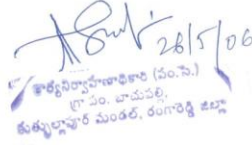 26/5/06
కార్యనిర్వాహణాధికారి (పం.సే.)
గ్రా పం. బాచుపల్లి,
కుత్బుల్లాపూర్ మండల్, రంగారెడ్డి జిల్లా